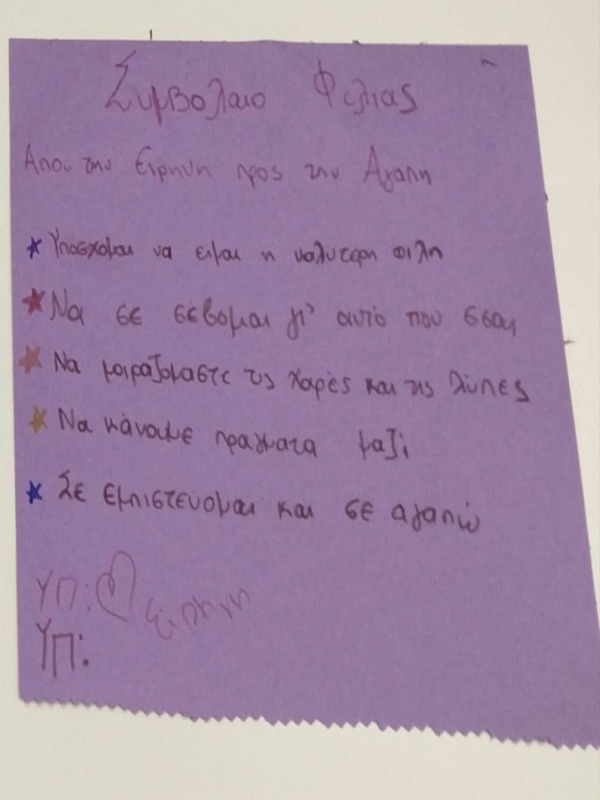 Συμβολαιο Φιλιας
Απο την Ειρηνη προς την Αγαπη
Υποσχομαι να ειμαι η καλυτερη φιλη
Να σε σέβομαι γι' αυτό που εσαι
Να μοιραζομαστε τις χαρές και της λύπες
Να κάνουμε πραγματα μαζί
Σε εμπιστευομαι και σε αγαπώ
ΥΠ: Ειρηνη
ΥΠ: